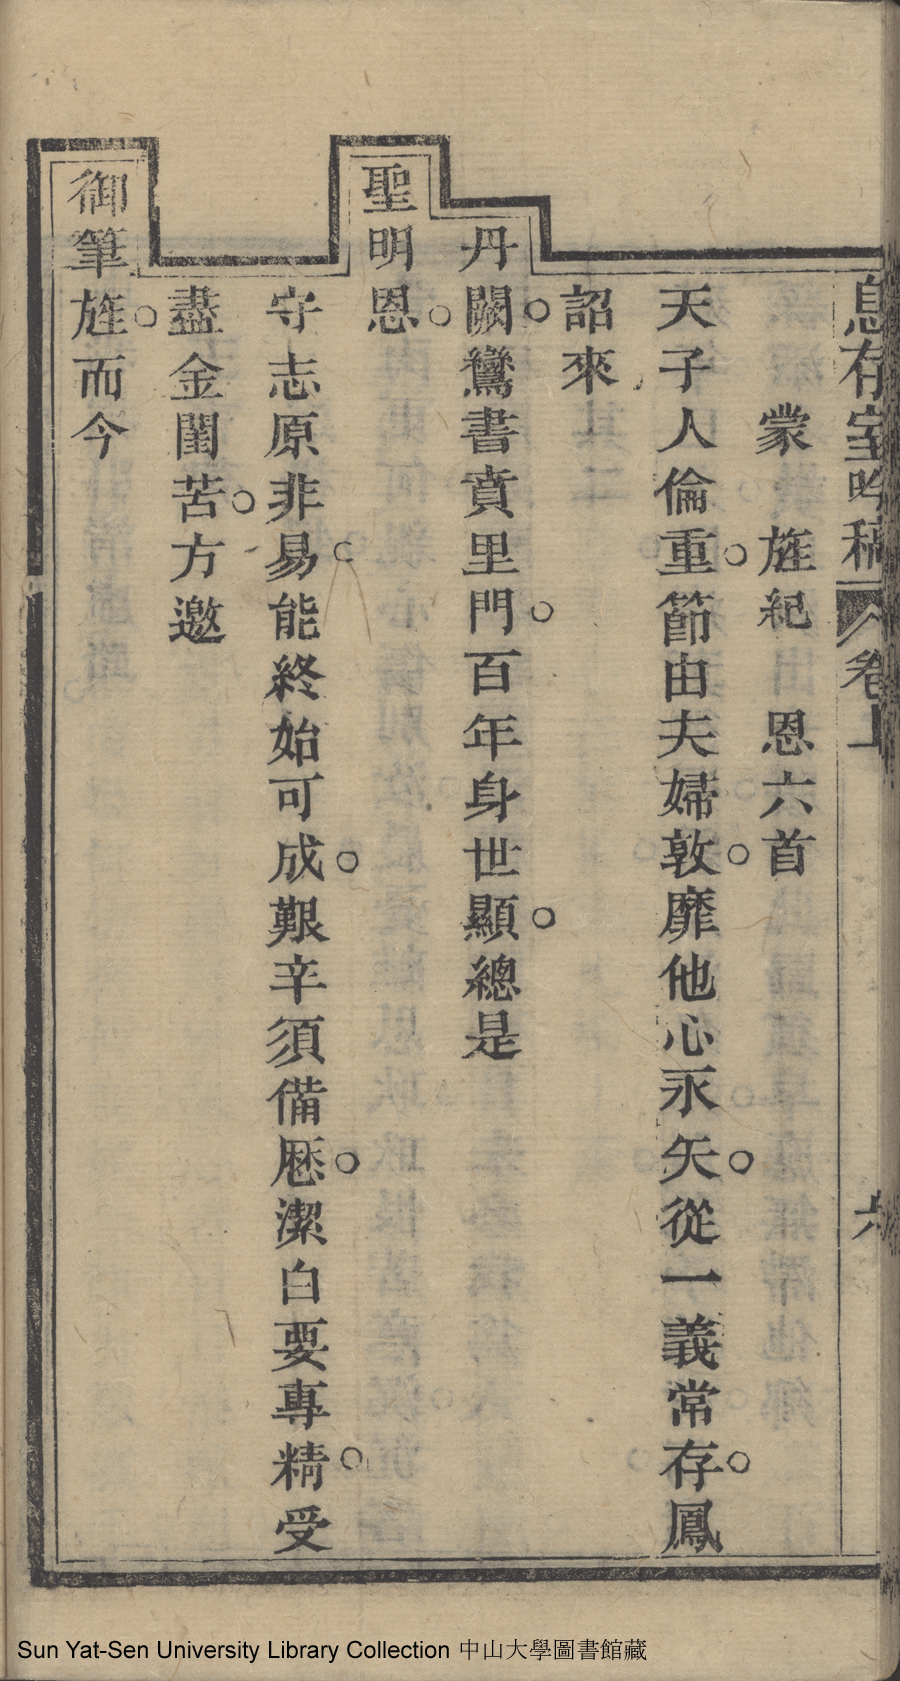 息存室吟稿 卷上 六
蒙 旌紀 恩六首
天子人倫重節由夫婦敦靡他心永矢從一義常存鳳
詔來
丹闕鸞書賁里門百年身世顯總是
聖明恩
守志原非易能終始可成艱辛須備歷潔白要專精受
盡金閨苦方邀
御筆旌而今
Sun Yat-Sen University Library Collection 中山大學圖書館藏